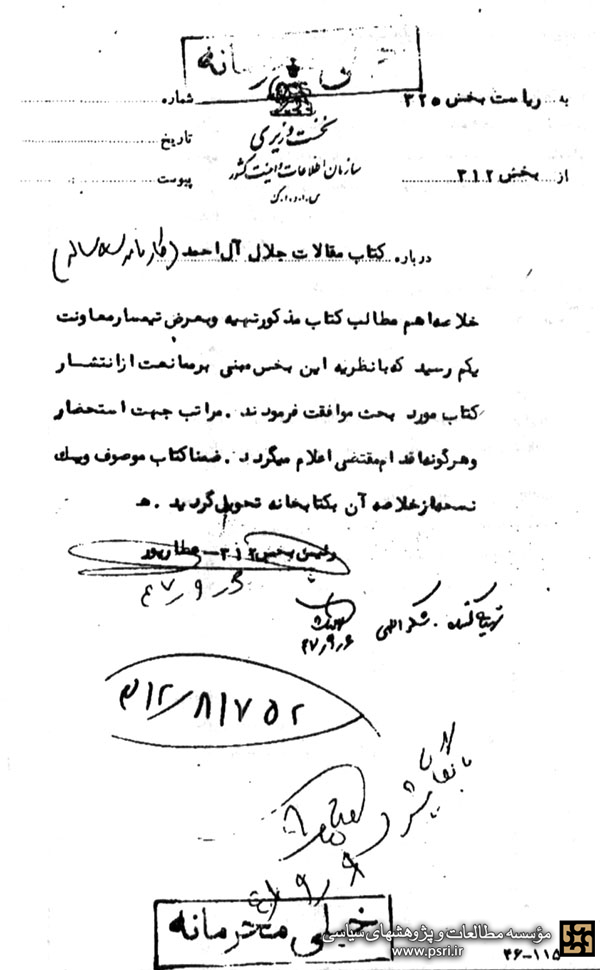 خیلی محرمانه
به ریاست بخش ۳۲۵
شماره
نخست وزیری
تاریخ
سازمان اطلاعات و امنیت کشور
از بخش ۳۱۲
پیوست
س.ا.و.ا.ک
درباره کتاب مقالات جلال آل احمد (کارنامه سه ساله)
خلاصه اهم مطالب کتاب مذکور تهیه و بعرض تیمسار معاونت
یکم رسید که با نظریه این بخش مبنی بر ممانعت از انتشار
کتاب مورد بحث موافقت فرمودند . مراتب جهت استحضار
و هرگونه اقدام مقتضی اعلام میگردد . ضمنا کتاب موصوف و یک
نسخه از خلاصه آن بکتابخانه تحویل گردید . ه
رئیس بخش ۳۱۲ - عطارپور
۴۷٫۹٫۶
تهیه کننده . شکرالهی
۴۷٫۹٫۶
۳۱۲/۸۱۷۵۲
بایگانی شود
خیلی محرمانه
۴۶-۱۱۵
مؤسسه مطالعات و پژوهشهای سیاسی
www.psri.ir